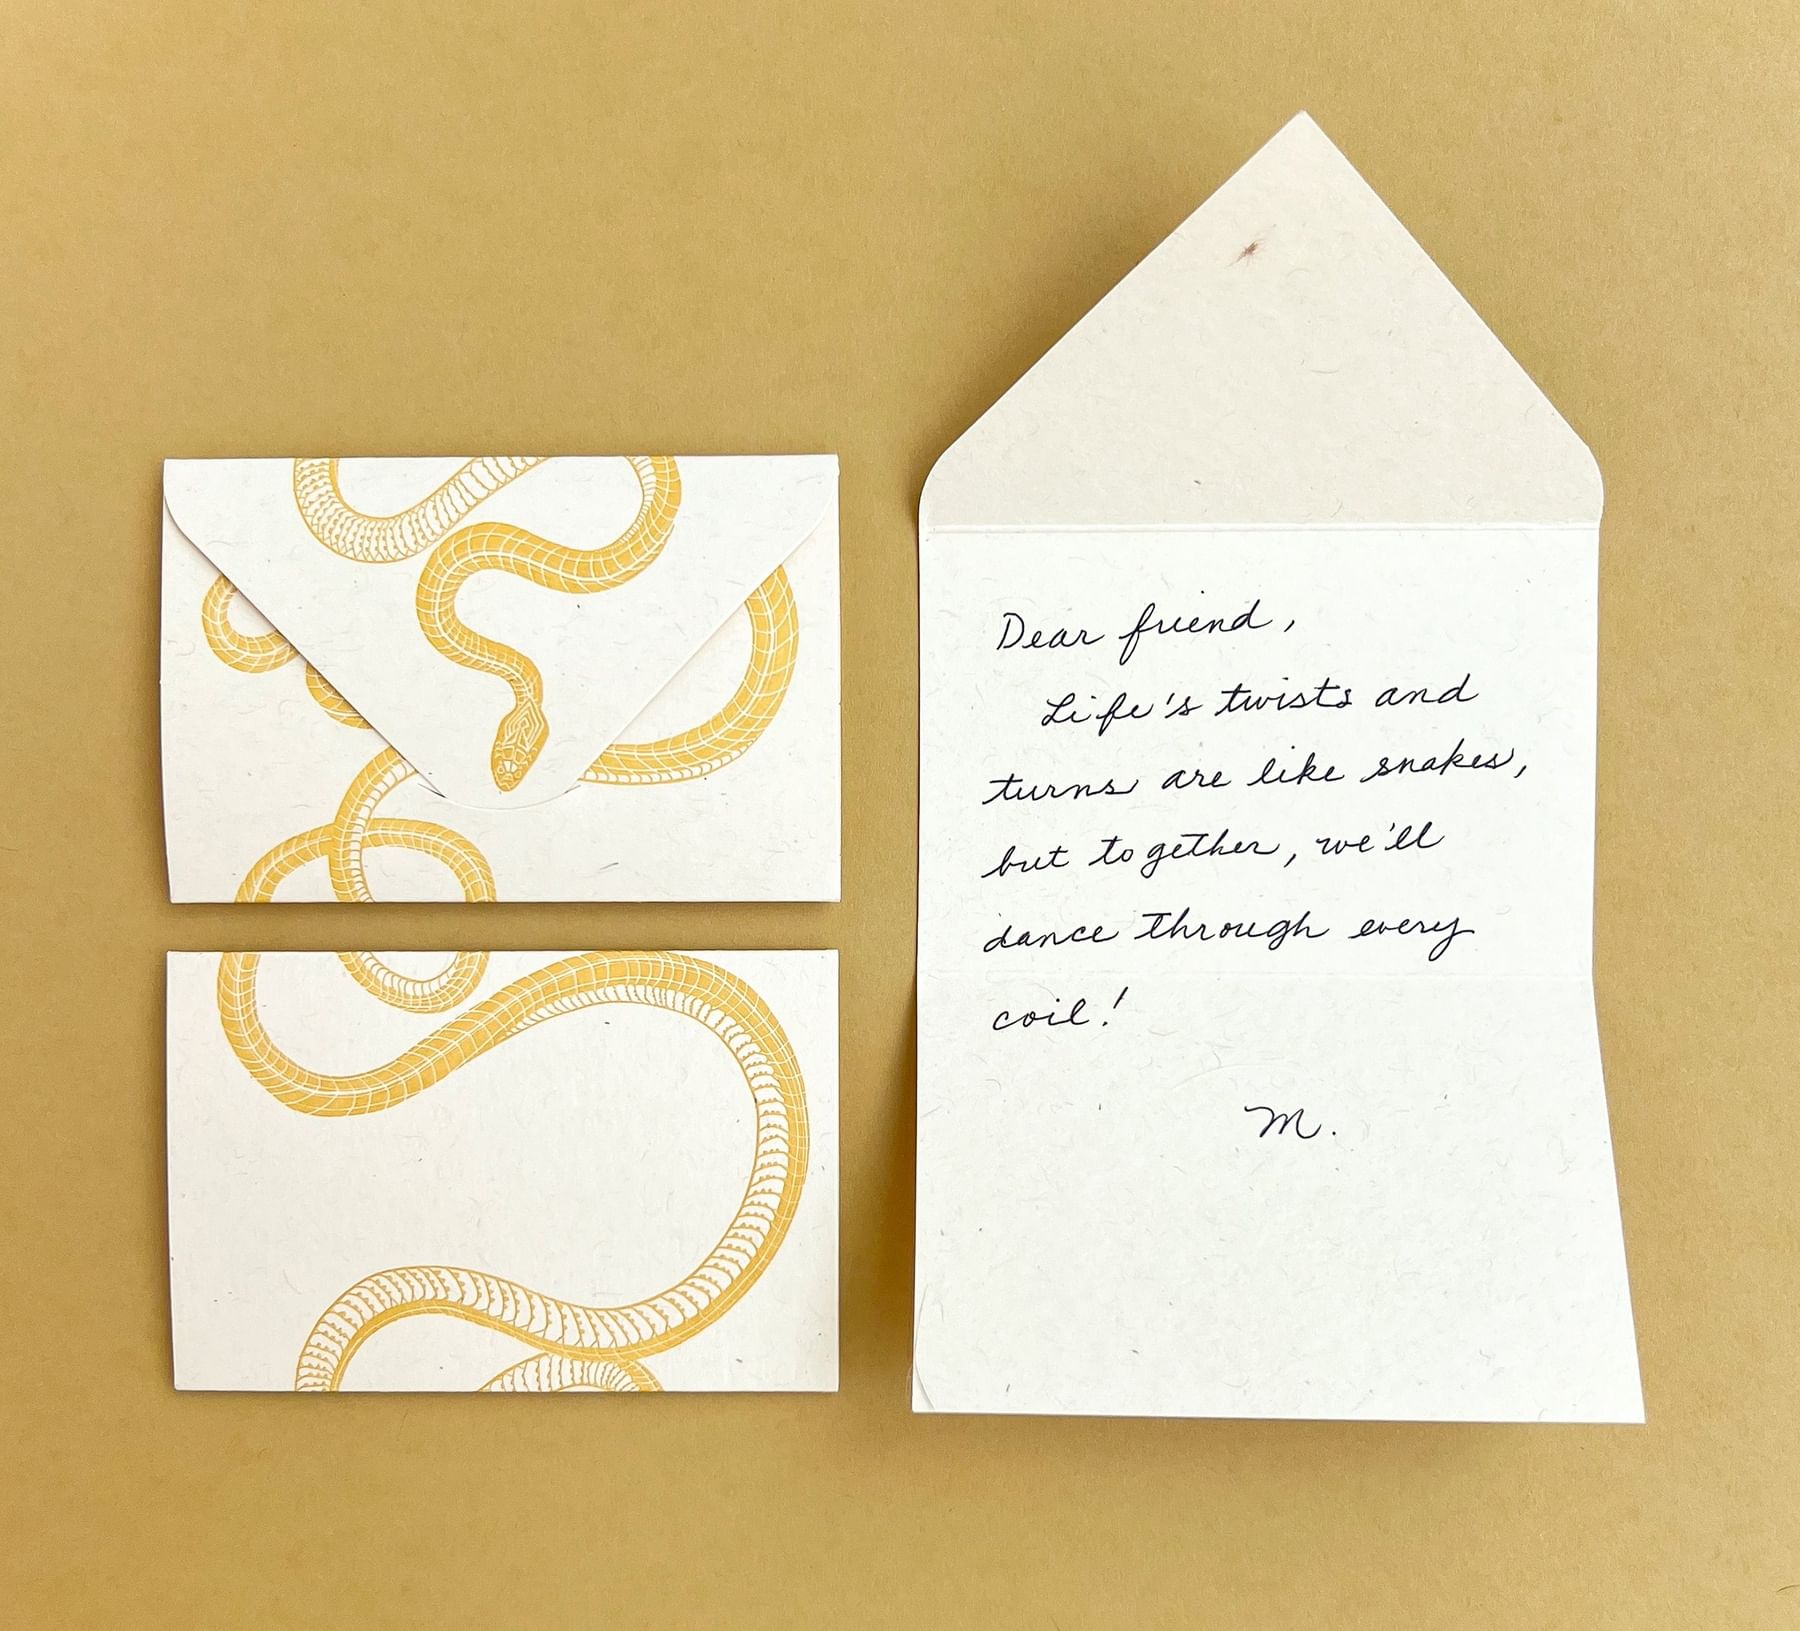 Dear friend,
Life's twists and
turns are like snakes,
but together, we'll
dance through every
coil!
M.